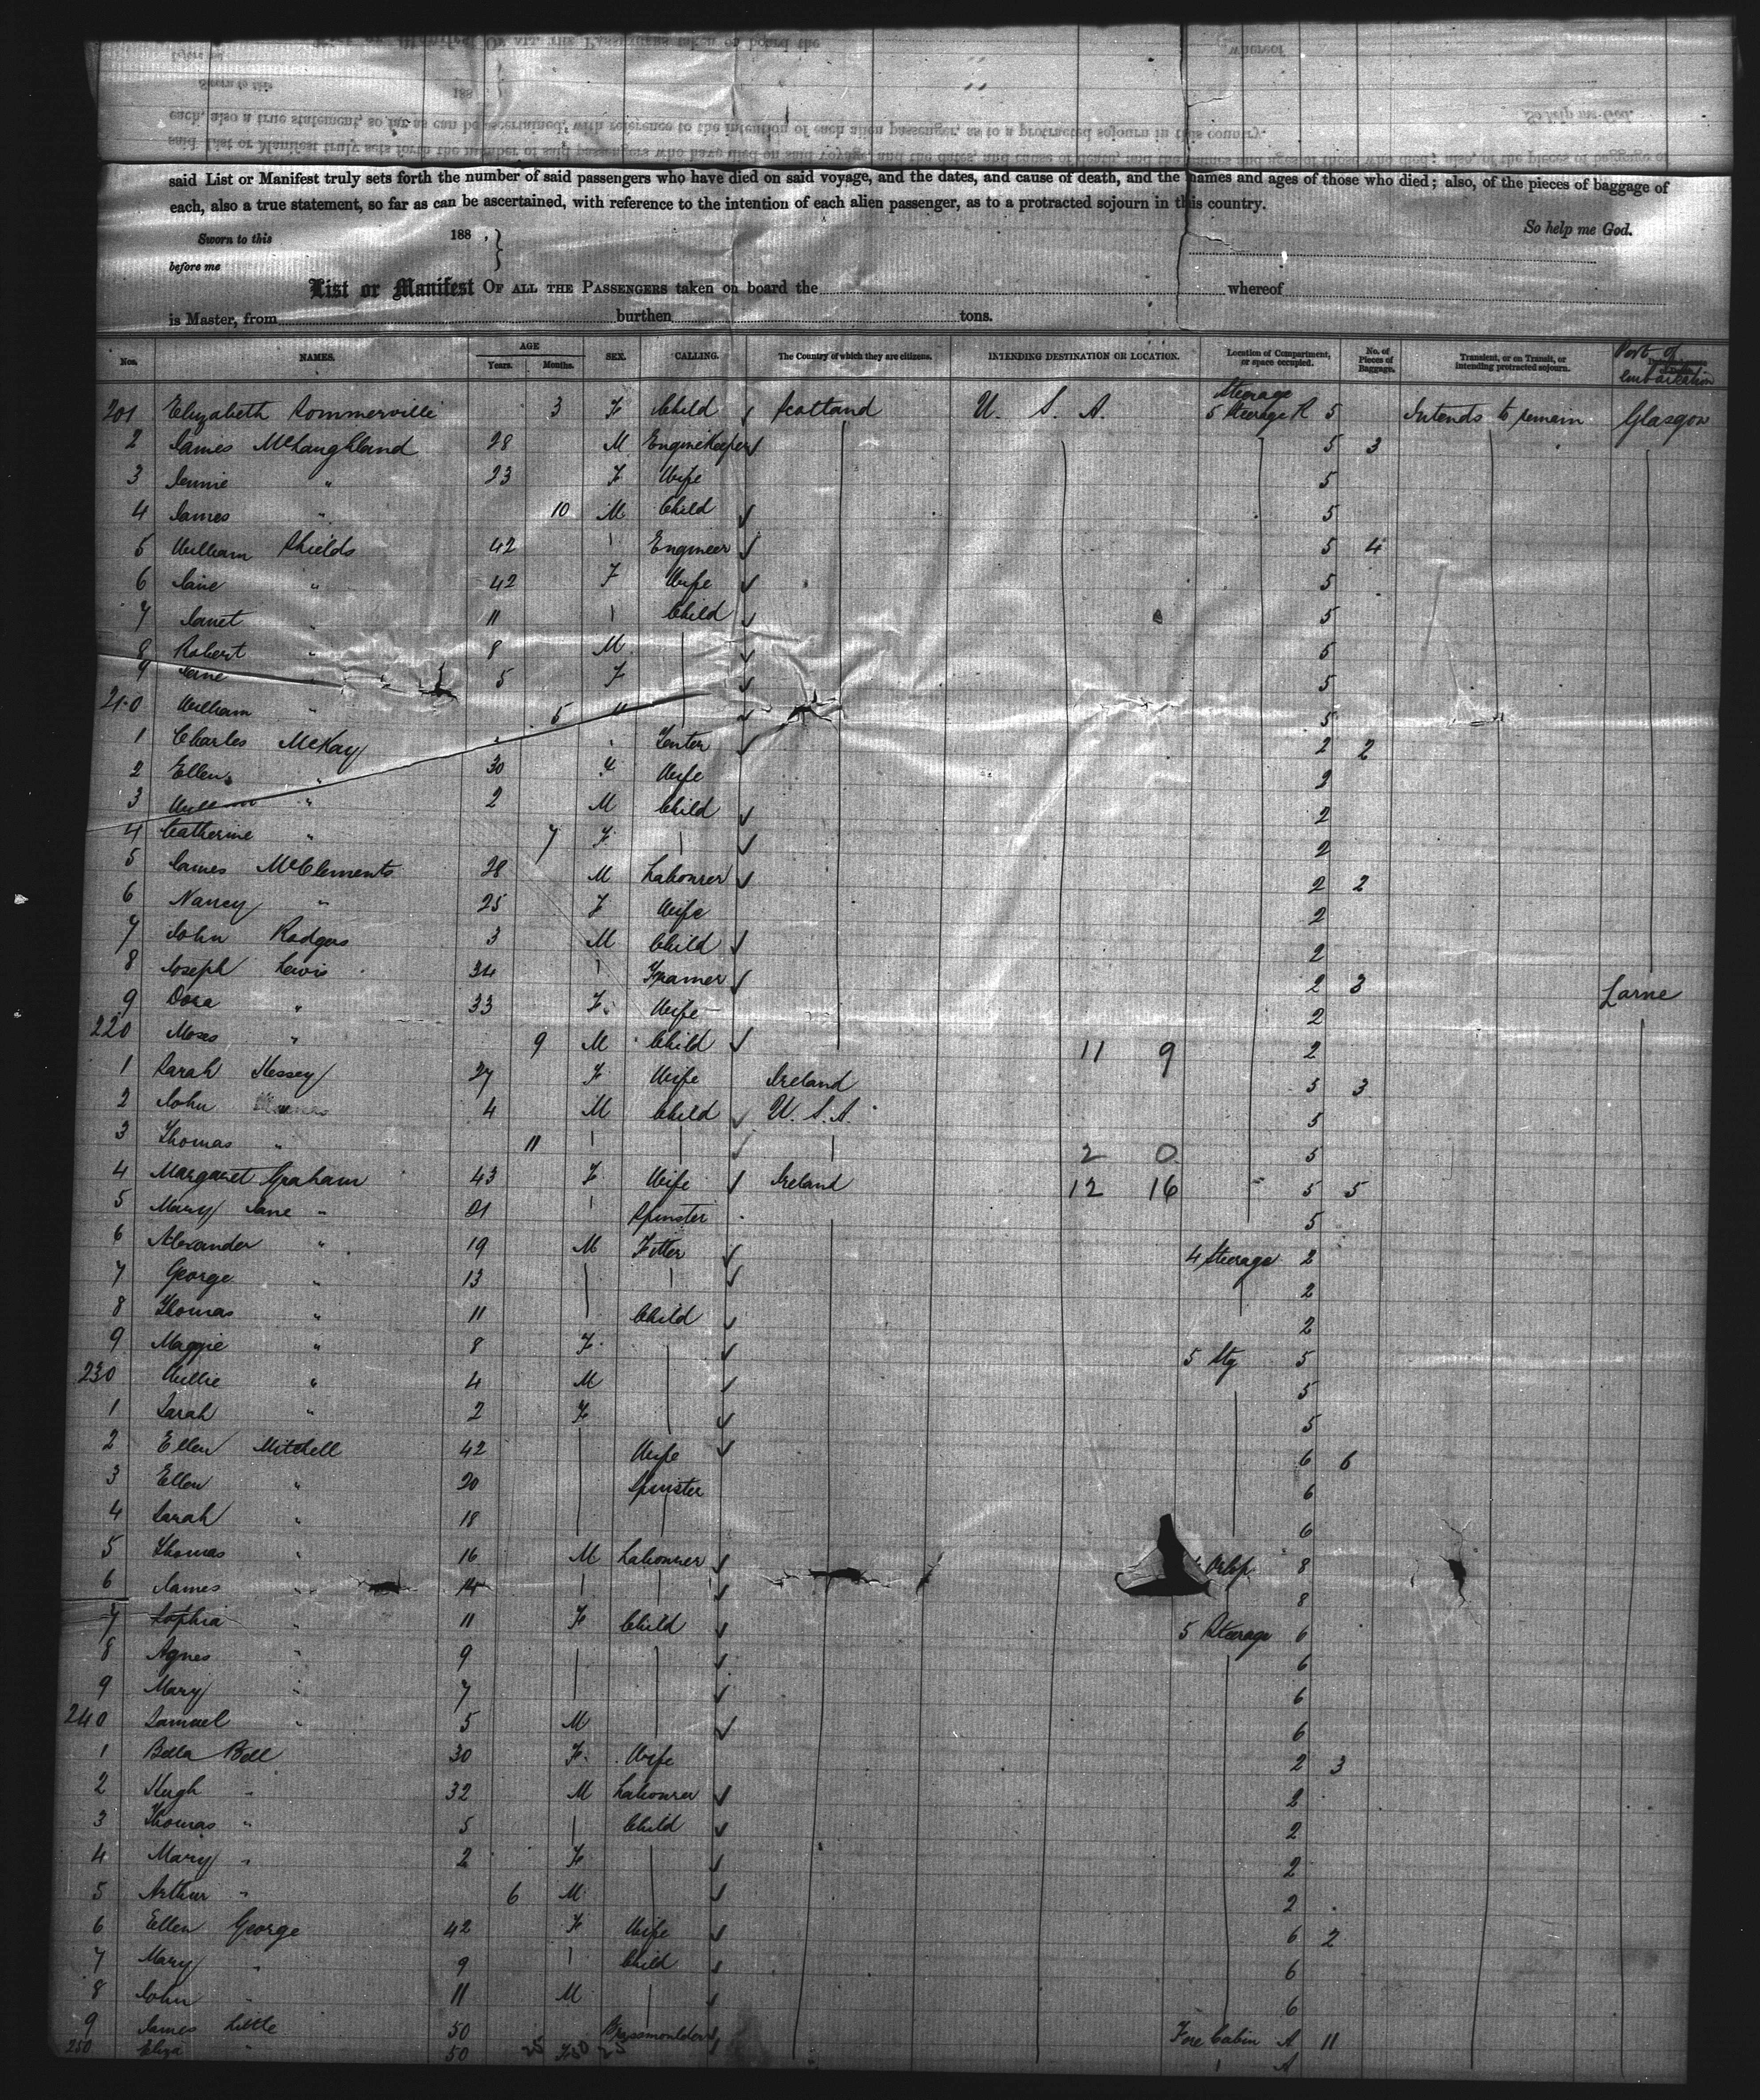 said List or Manifest truly sets forth the number of said passengers who have died on said voyage, and the dates, and cause of death, and the names and ages of those who died; also, of the pieces of baggage of
each, also a true statement, so far as can be ascertained, with reference to the intention of each alien passenger, as to a protracted sojourn in this country.
So help me God.
Sworn to this 188 , }
before me
List or Manifest OF ALL THE PASSENGERS taken on board the whereof
is Master, from burthen tons.
Nos. NAMES. AGE Years. Months. SEX. CALLING. The Country of which they are citizens. INTENDING DESTINATION OR LOCATION. Location of Compartment, or space occupied. No. of Pieces of Baggage. Transient, or en Transit, or intending protracted sojourn. Port of embarkation
201 Elizabeth Sommerville 3 F Child Scotland U. S. A. Steerage 5 Steerage 5 Intends to remain Glasgow
2 James McLaughland 28 M EngineKeeper 5 3
3 Jennie " 23 F Wife 5
4 James " 10 M Child 5
5 William Shields 42 Engineer 5 4
6 Jane " 42 F Wife 5
7 Janet " 11 Child 5
8 Robert " 8 M 5
9 Jane 5 F 5
210 William " 5 5
1 Charles McKay 2 2
2 Ellen " 30 Wife 2
3 " 2 M Child 2
4 Catherine " 7 F 2
5 James McClements 28 M Labourer 2 2
6 Nancy " 25 F Wife 2
7 John Rodgers 3 M Child 2
8 Joseph Lewis 34 2 3 Larne
9 Dora " 33 F Wife 2
220 Moses " 9 M Child 11 9 2
1 Sarah Hessey 27 F Wife Ireland 5 3
2 John 4 M Child U. S. A. 5
3 Thomas " 11 2 0 5
4 Margaret Graham 43 F Wife Ireland 12 16 5 5
5 Mary Jane " 21 Spinster 5
6 Alexander " 19 M Fitter 4 Steerage 2
7 George " 13 2
8 Thomas " 11 Child 2
9 Maggie " 8 F 5 Stg 5
230 Willie " 4 M 5
1 Sarah " 2 F 5
2 Ellen Mitchell 42 Wife 6 6
3 Ellen " 20 Spinster 6
4 Sarah " 18 6
5 Thomas " 16 M Labourer Orlop 8
6 James " 14 8
7 Sophia " 11 F Child 5 Steerage 6
8 Agnes " 9 6
9 Mary " 7 6
240 Samuel " 5 M 6
1 Bella Bell 30 F Wife 2 3
2 Hugh " 32 M Labourer 2
3 Thomas " 5 Child 2
4 Mary " 2 F 2
5 Arthur " 6 M 2
6 Ellen George 42 F Wife 6 2
7 Mary " 9 Child 6
8 John " 11 M 6
9 James Little 50 Brassmoulder Fore Cabin A 11
250 Eliza " 50 A